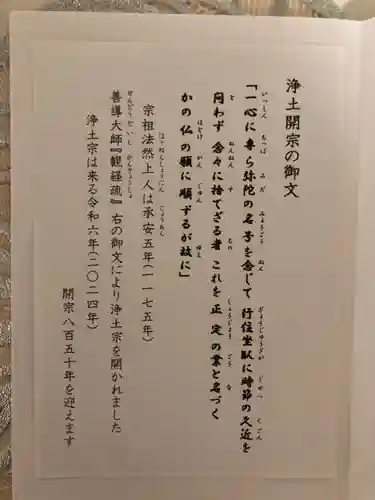 浄土開宗の御文
「一心に専ら弥陀の名号を念じて 行住坐臥に時節の久近を
問わず 念々に捨てざる者 これを正定の業と名づく
かの仏の願に順ずるが故に」
宗祖法然上人は承安五年(一一七五年)
善導大師『観経疏』右の御文により浄土宗を開かれました
浄土宗は来る令和六年(二〇二四年)
開宗八百五十年を迎えます